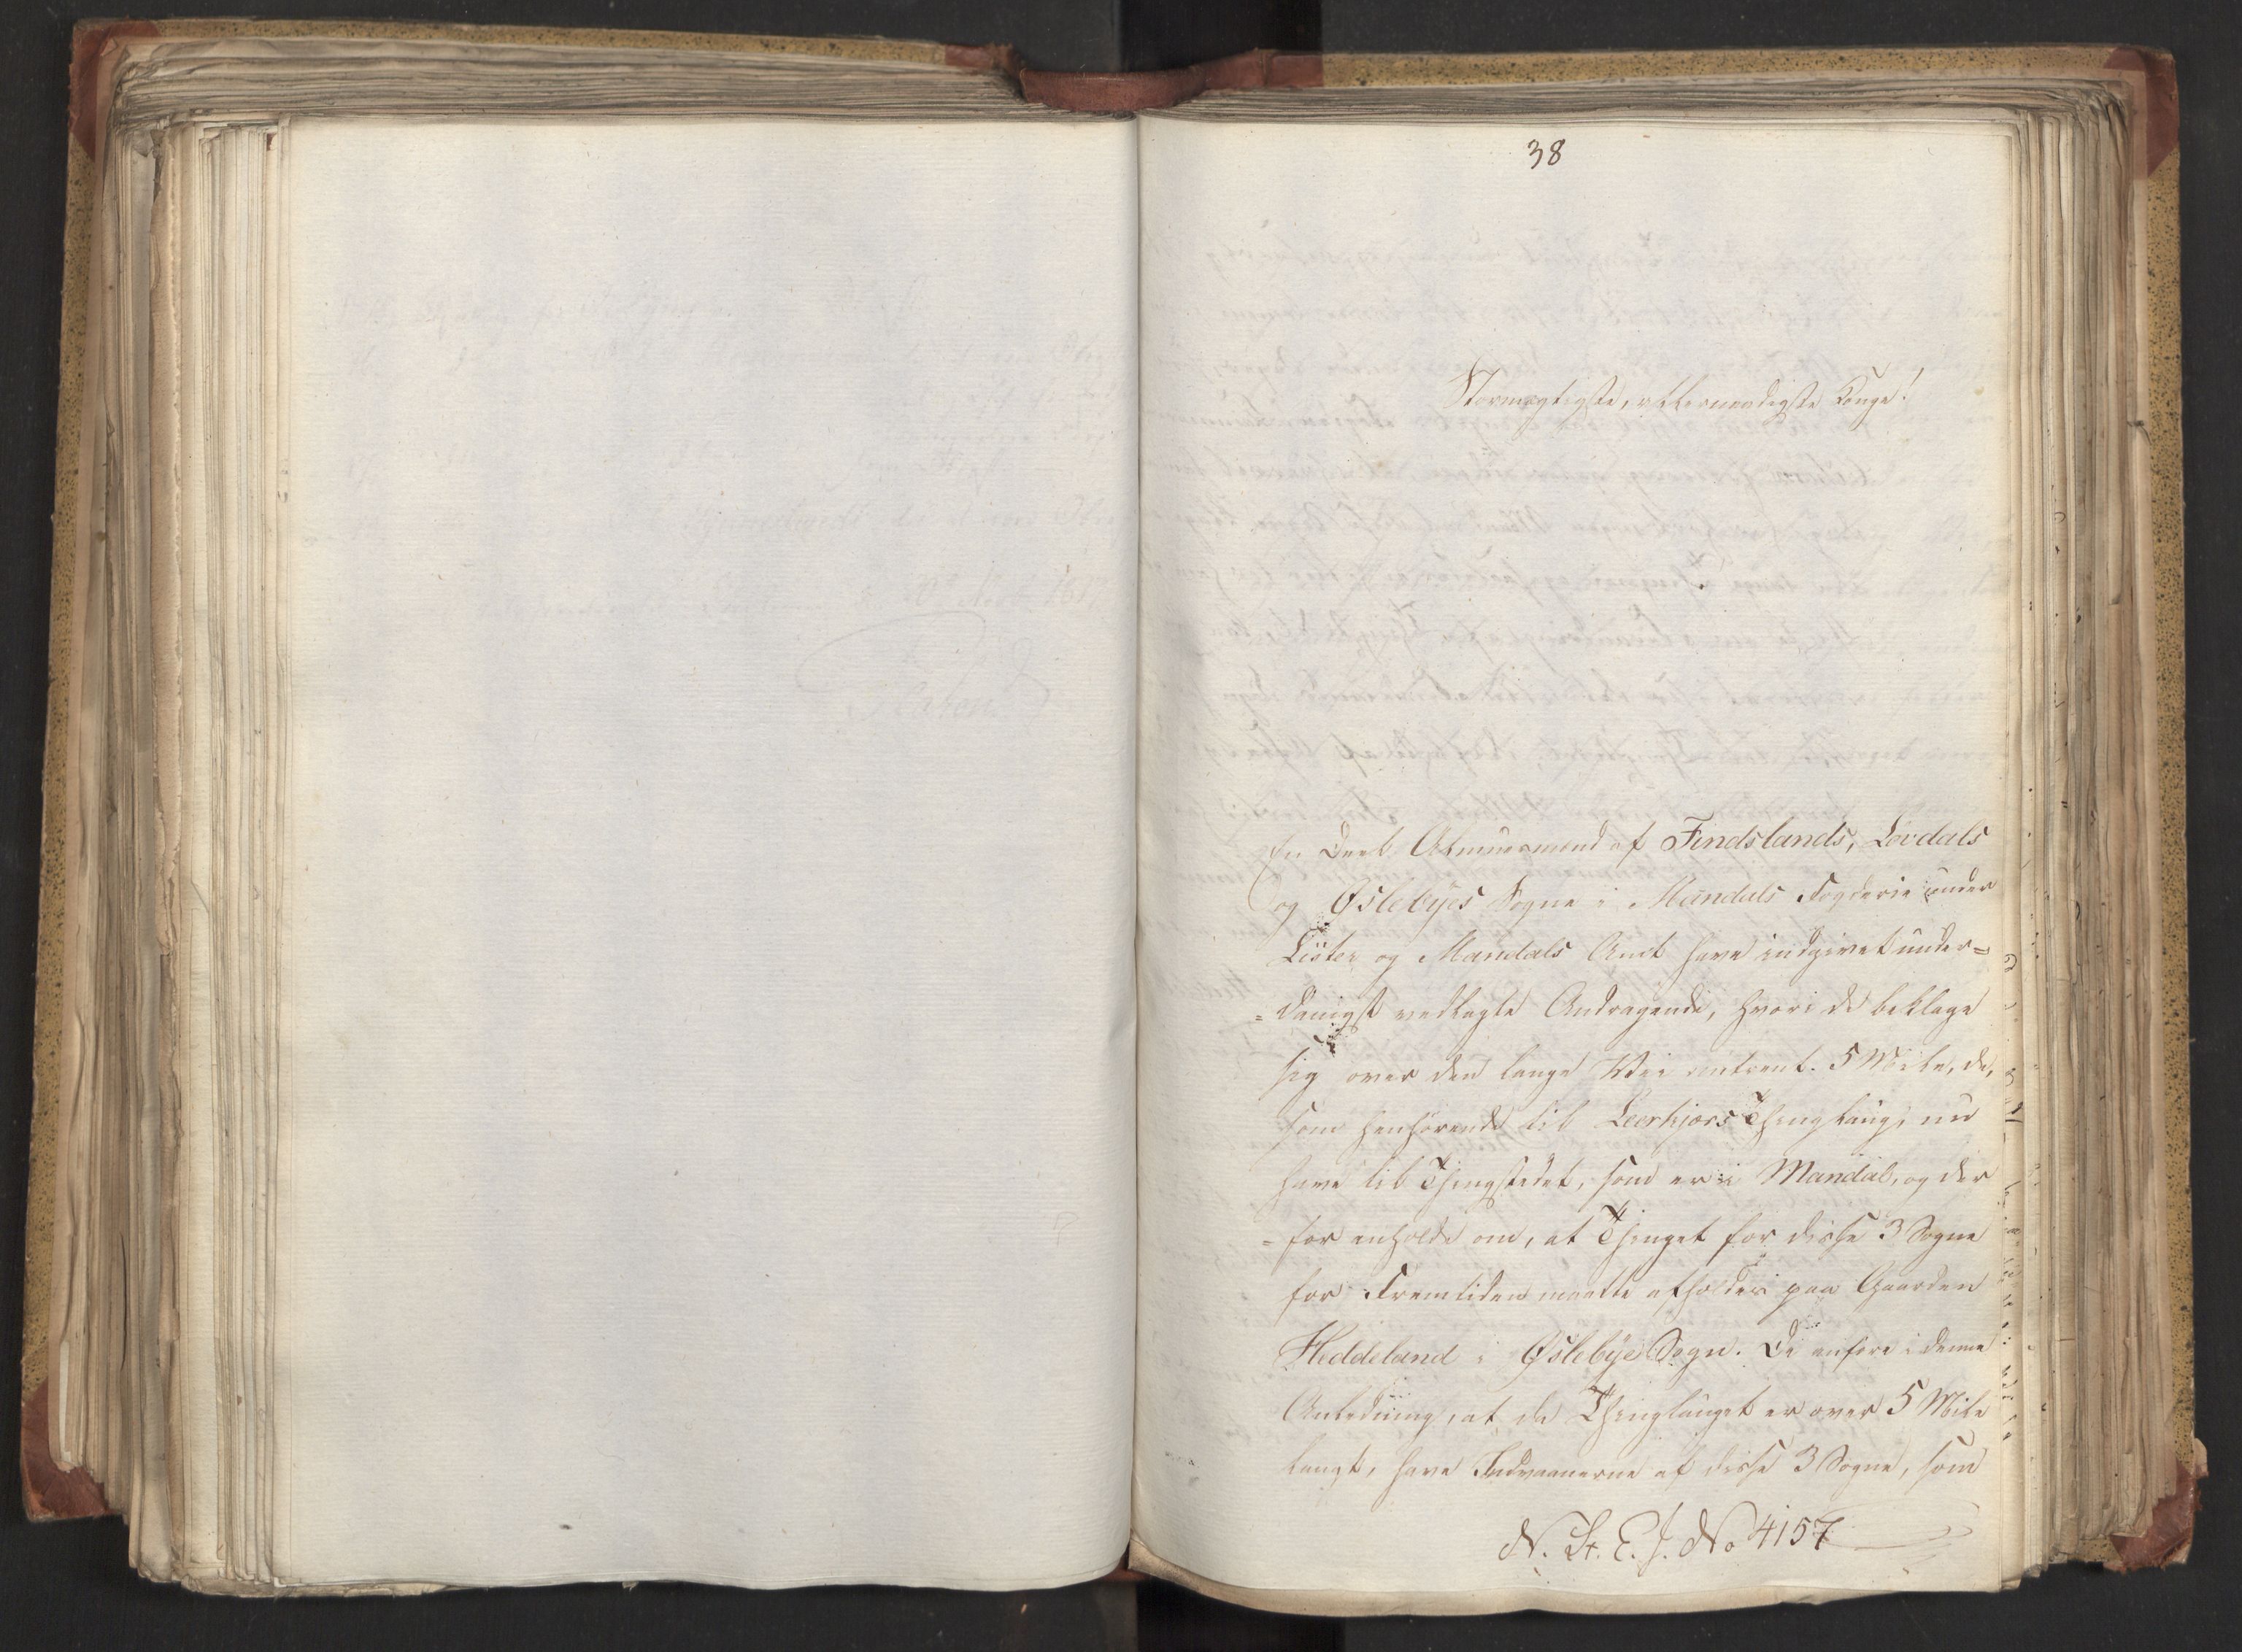 38
Stormægtigste, allernaadigste Konge!
En Deel Almuesmænd af Findslands, Lovdals
og Øslebyes Sogne i Mandals Fogderie under
Lister og Mandals Amt have indgivet under-
-danigst vedlagte Andragende, hvori de beklage
sig over den lange Vei omtrent 5 Mile, de,
som henhørende til Leerkjærs Thinglaug, nu
have til Thingstedet, som er i Mandal, og der
-for anholde om, at Thinget for disse 3 Sogne
for Fremtiden maatte afholdes paa Gaarden
Heddeland i Øslebye Sogn. De anføre i denne
Anledning, at da Thinglauget er over 5 Mile
langt, have Indvaanerne af disse 3 Sogne, som
N. St. E. J. No 4157